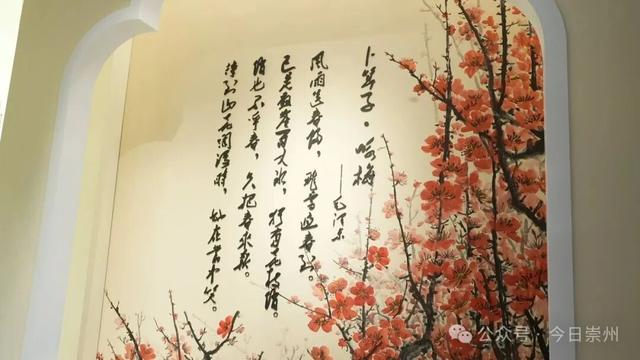 卜算子·咏梅
——毛泽东
风雨送春归，飞雪迎春到。
已是悬崖百丈冰，犹有花枝俏。
俏也不争春，只把春来报。
待到山花烂漫时，她在丛中笑。
公众号·今日崇州